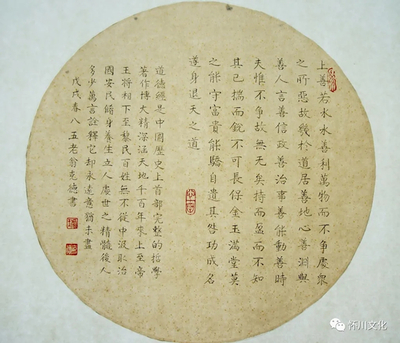 上善若水水善利萬物而不爭處衆
之所惡故幾於道居善地心善淵與
善人言善信政善治事善能動善時
夫惟不爭故無矣持而盈而
其已揣而銳不可長保金玉滿堂莫
之能守富貴能驕自遺其咎功成名
遂身退天之道
道德經是中國歷史上首部完整的哲學
著作博大精深涵天地千百年來上至帝
王將相下至黎民百姓無不從中汲取治
國安民脩身養生立人處世之精髓後人
多少萬言詮釋它却永遠意猶未盡
戊戌春八五老翁克德書
怀川文化